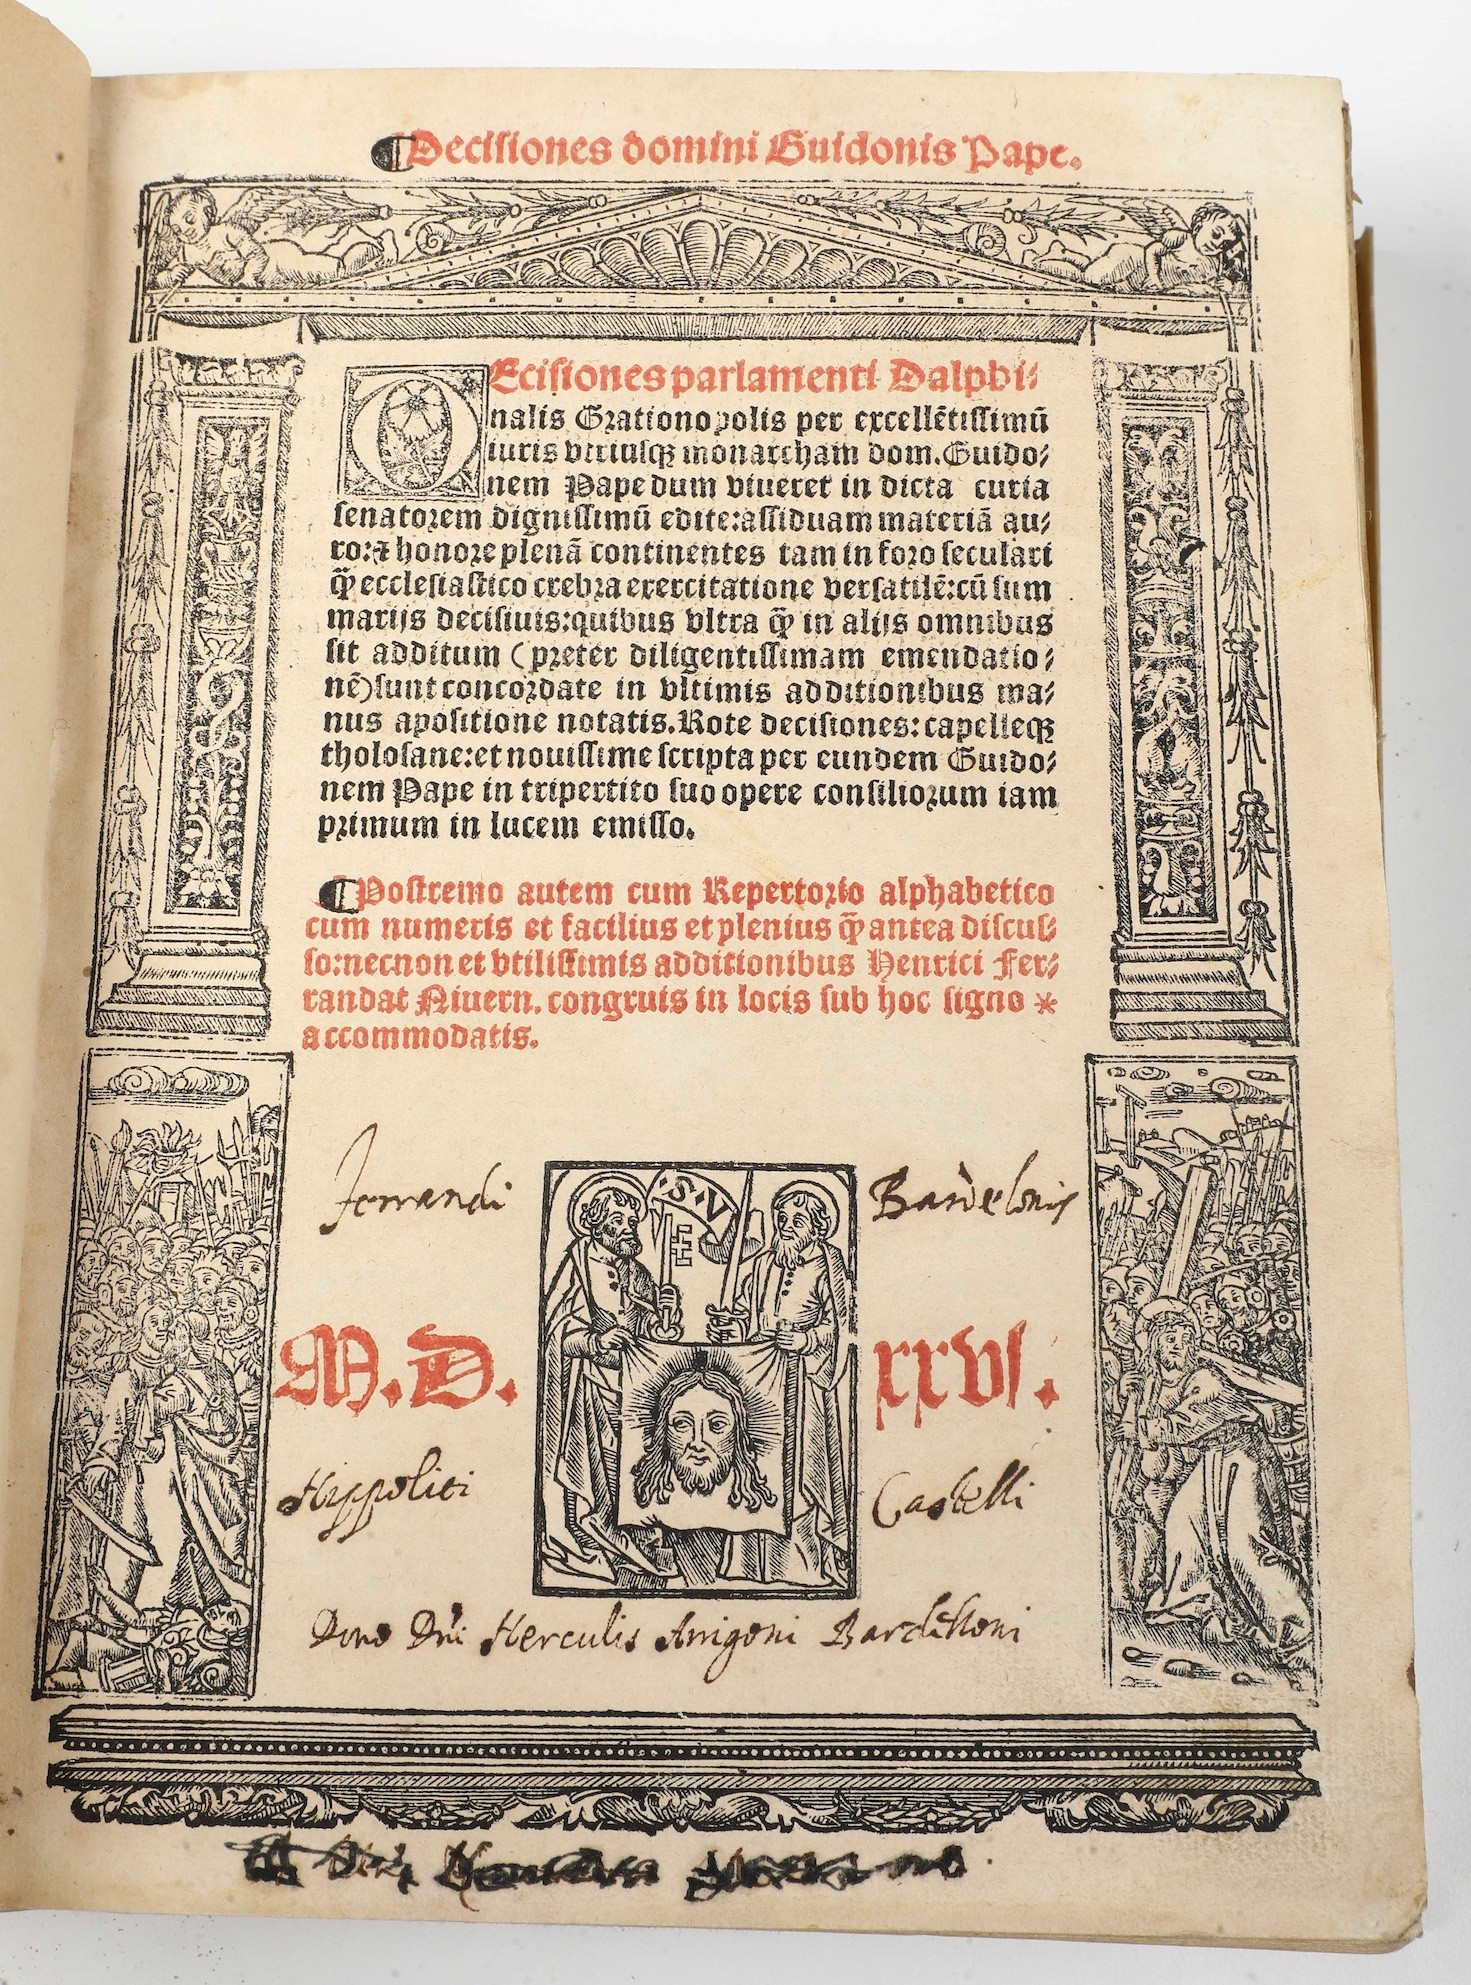 ¶ Decisiones domini Guidonis Pape.
DEcisiones parlamenti Dalphi⸗
nalis Grationopolis per excellētissimū
iuris vtriusqꝫ monarcham dom. Guido⸗
nem Pape dum viueret in dicta curia
senatorem dignissimū edite: assiduam materiā au⸗
ro: ⁊ honore plenā continentes tam in foro seculari
q̄ȝ ecclesiastico crebra exercitatione versatilē: cū sum
marijs decisiuis: quibus vltra q̄ȝ in alijs omnibus
sit additum (preter diligentissimam emendatio⸗
nē) sunt concordate in vltimis additionibus ma⸗
nus apositione notatis. Rote decisiones: capelleqꝫ
tholosane: et nouissime scripta per eundem Guido⸗
nem Pape in tripertito suo opere consiliorum iam
primum in lucem emisso.
¶ Postremo autem cum Repertorio alphabetico
cum numeris et facilius et plenius q̄ȝ antea discus⸗
so: necnon et vtilissimis additionibus Henrici Fer⸗
randat Niuern. congruis in locis sub hoc signo *
accommodatis.
Ferrandi Bardelonis
.S.V
M.D. xxvi.
Hippoliti Castelli
Dono Dni Herculis Arrigoni Bardelloni